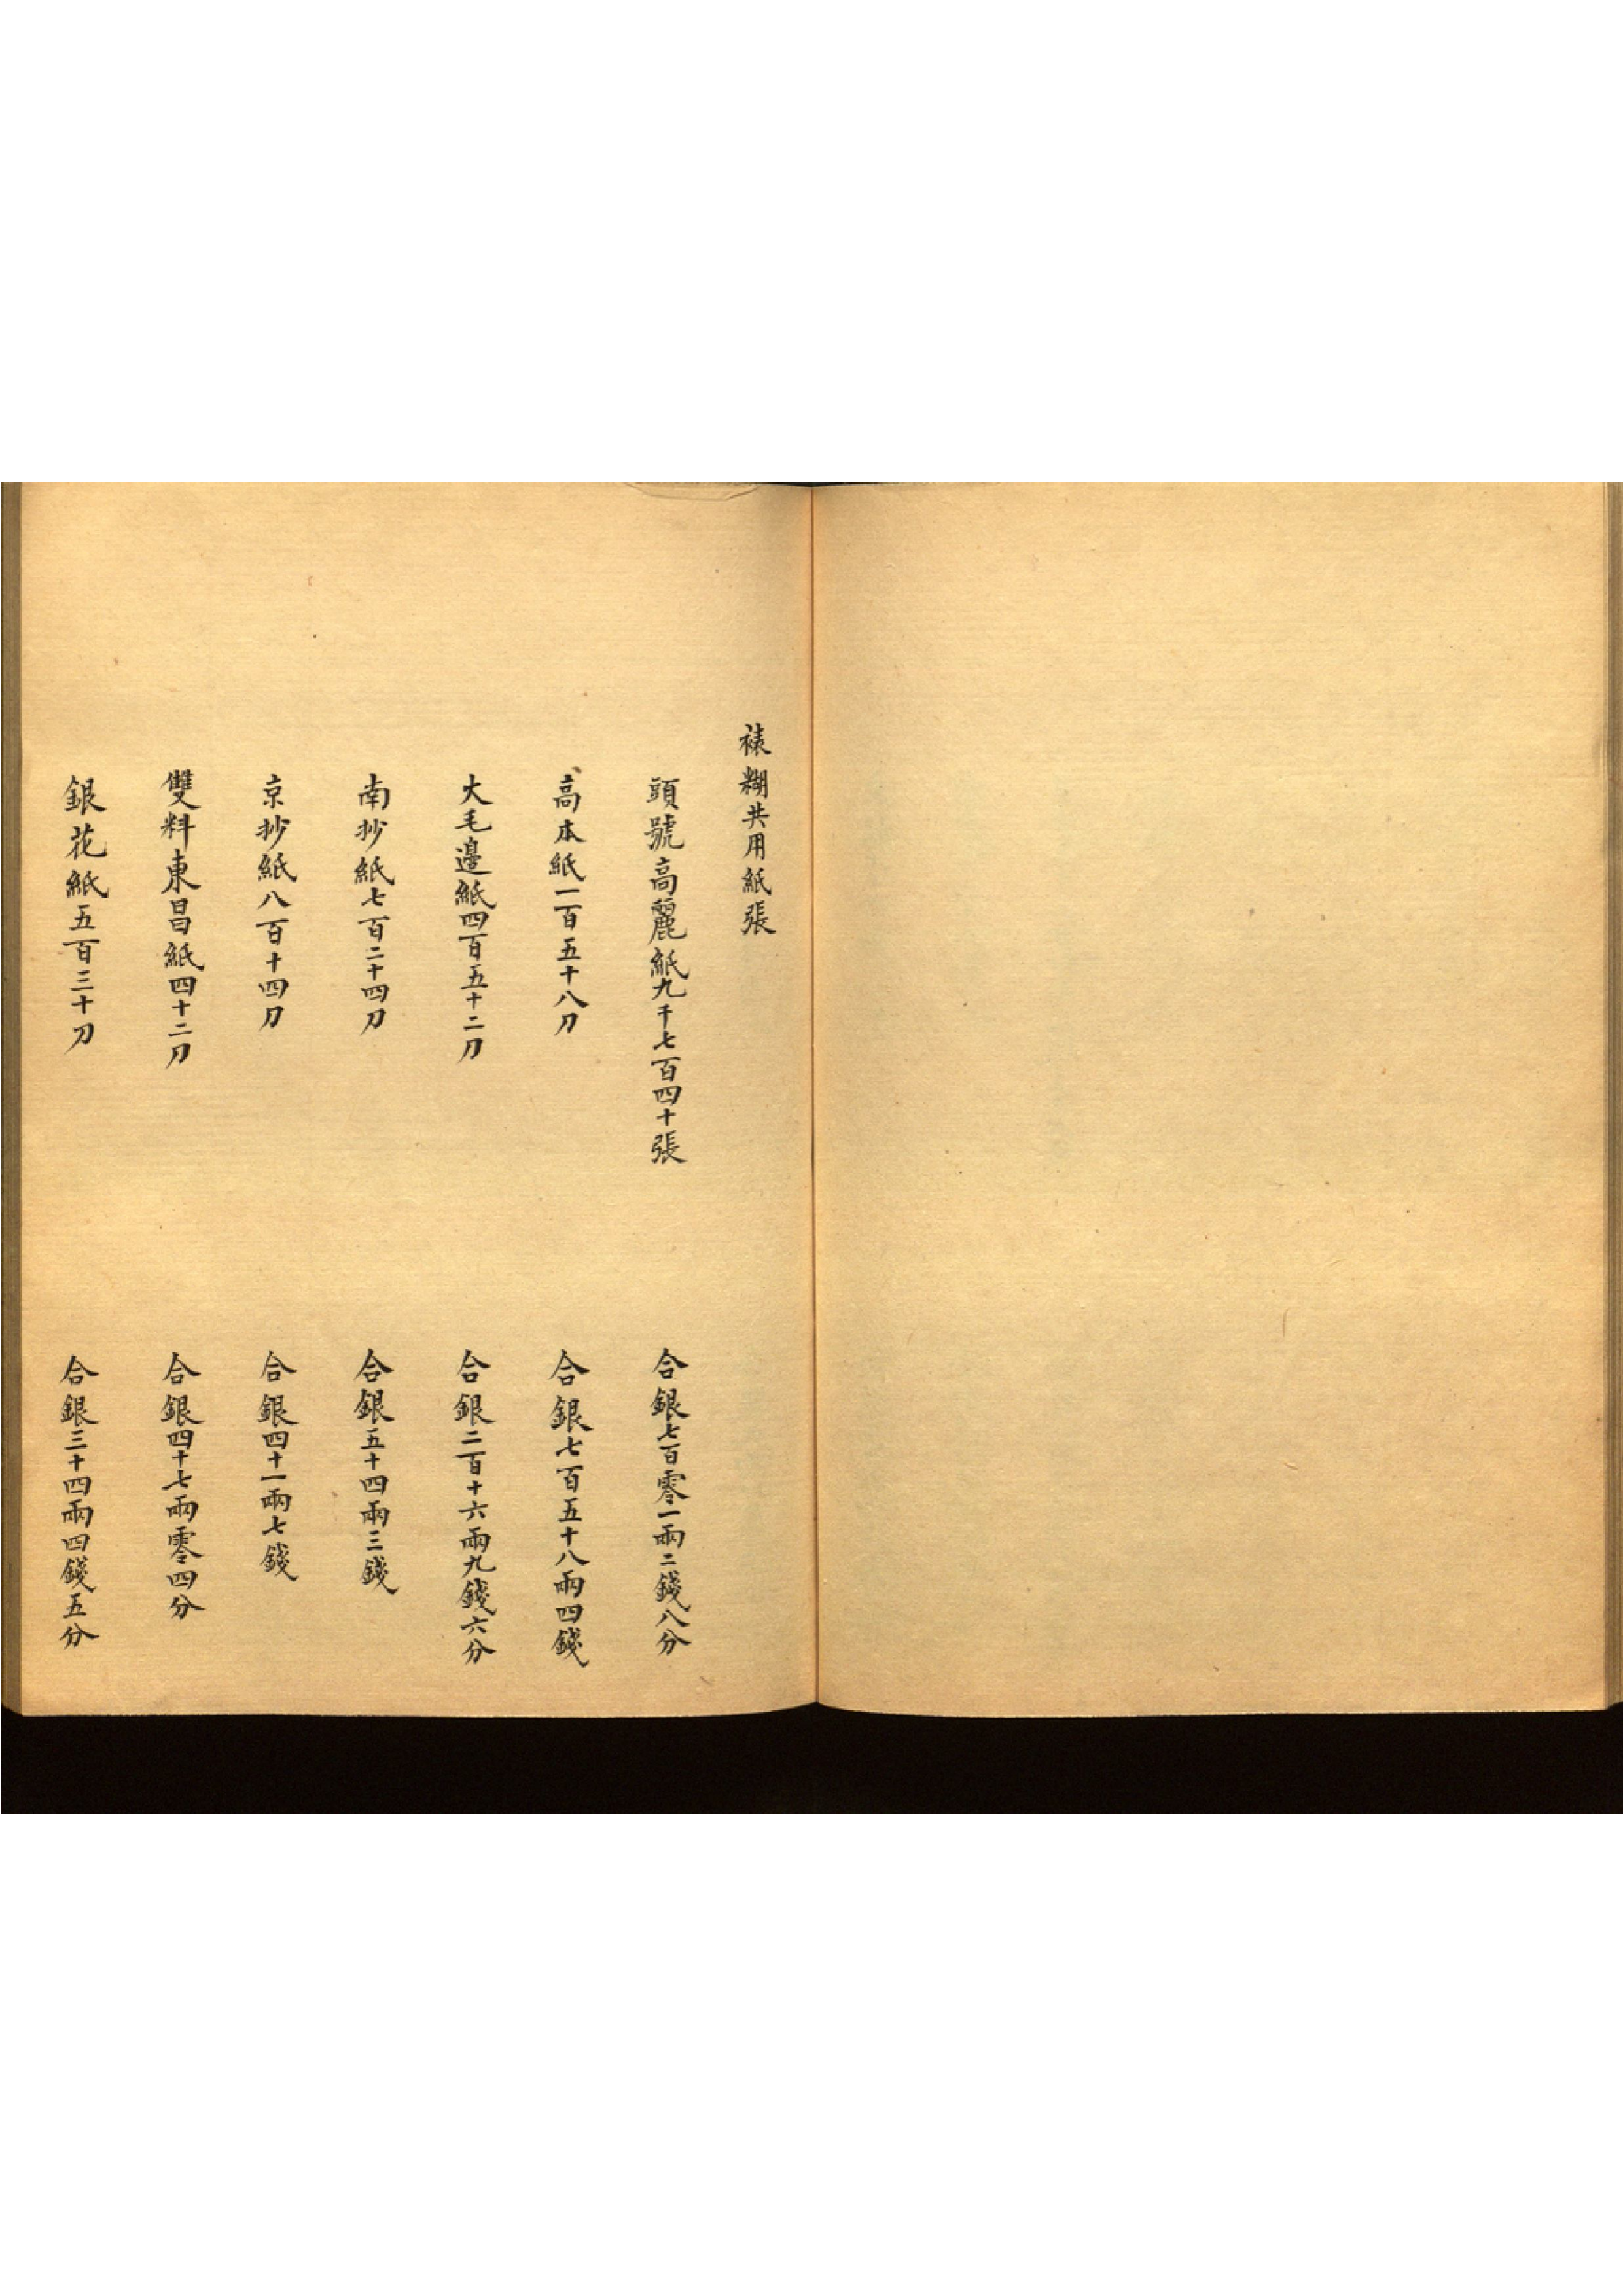 裱糊共用紙張
頭號高麗紙九千七百四十張 合銀七百零一兩二錢八分
高本紙一百五十八刀 合銀七百五十八兩四錢
大毛邊紙四百五十二刀 合銀二百十六兩九錢六分
南抄紙七百二十四刀 合銀五十四兩三錢
京抄紙八百十四刀 合銀四十一兩七錢
雙料東昌紙四十二刀 合銀四十七兩零四分
銀花紙五百三十刀 合銀三十四兩四錢五分